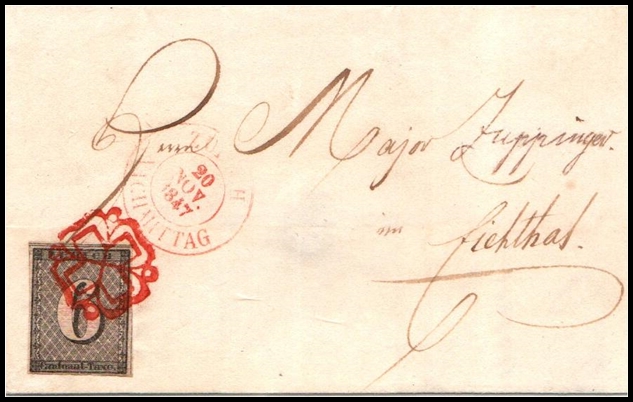 Herrn Major Zuppinger.
im Eichthal.
ZÜRICH
20
NOV.
1847
NACHMITTAG
ZÜRICH
6
Cantonal-Taxe.